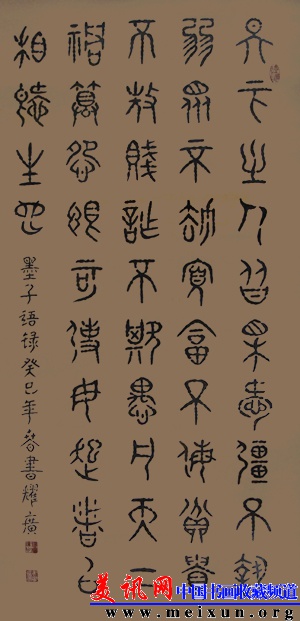 天下之人皆相愛彊不執
弱眾不劫寡富不侮貧貴
不敖賤詐不欺愚凡天下
禍篡怨恨可使毋起者以
相愛生也
墨子語録癸巳年春書耀廣
美讯网 中国书画收藏频道
www.meixun.org